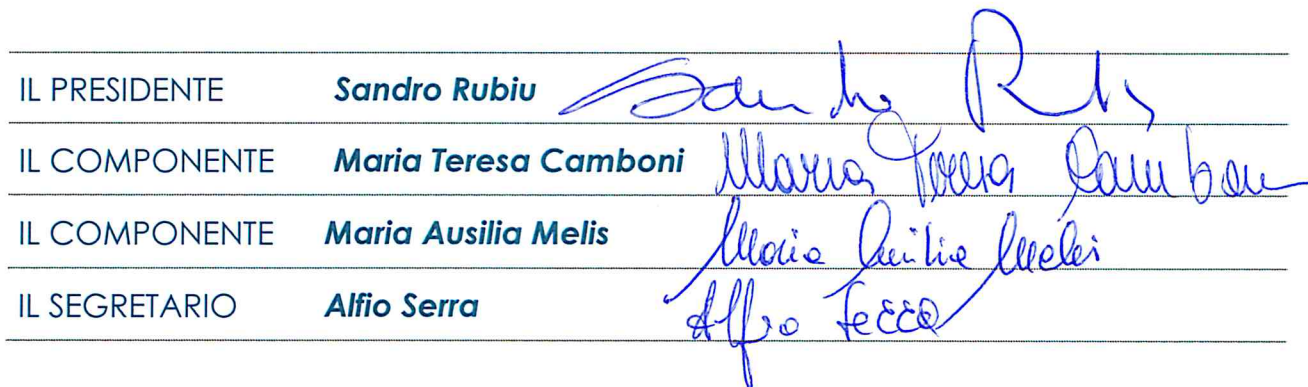 IL PRESIDENTE Sandro Rubiu Sandro Rubiu
IL COMPONENTE Maria Teresa Camboni Maria Teresa Camboni
IL COMPONENTE Maria Ausilia Melis Maria Ausilia Melis
IL SEGRETARIO Alfio Serra Alfio Serra